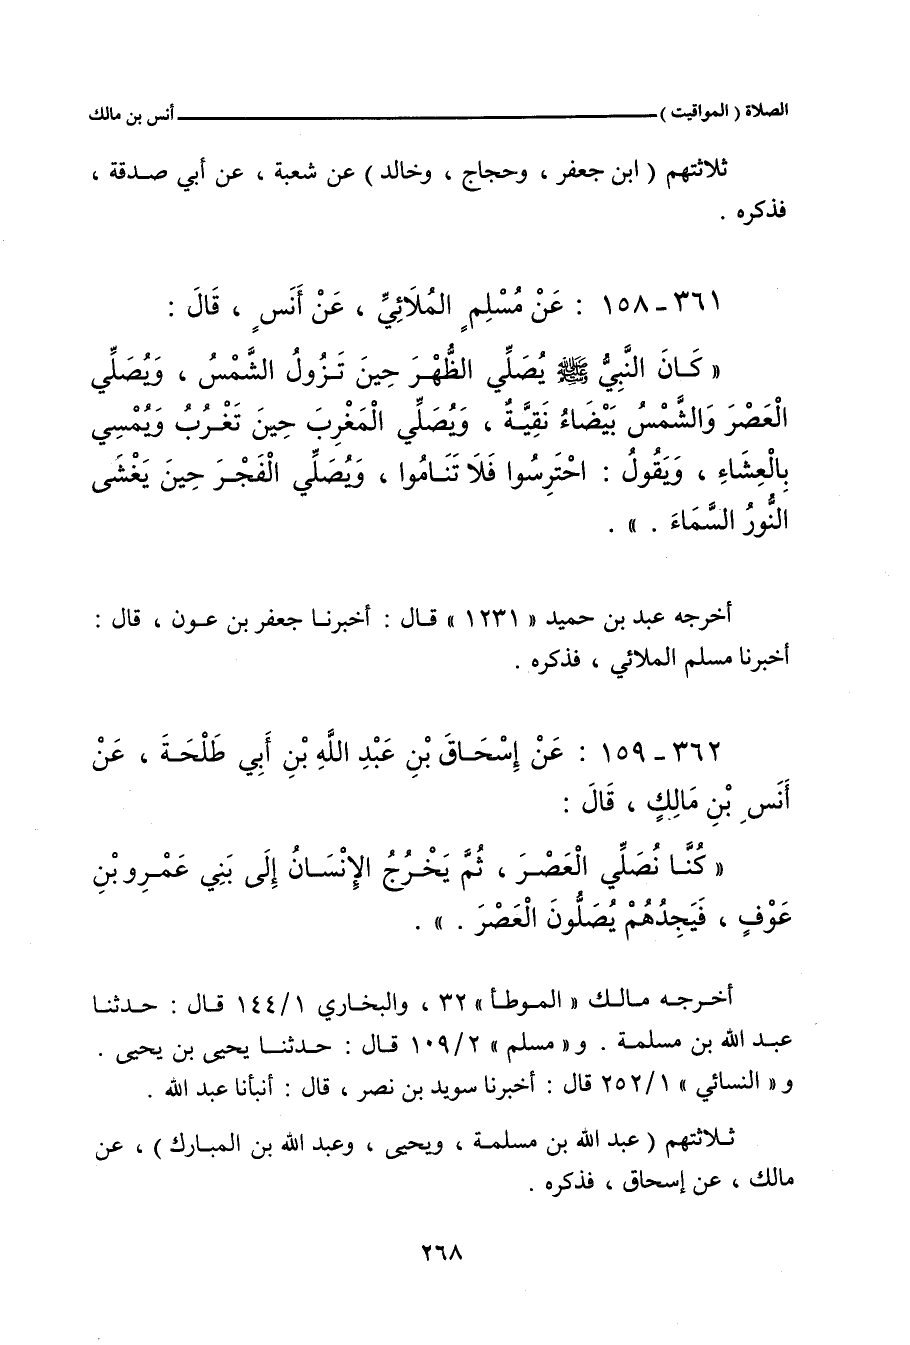 الصلاة ( المواقيت ) ــــــــــــــــــــ أنس بن مالك
ثلاثتهم ( ابن جعفر ، وحجاج ، وخالد ) عن شعبة ، عن أبي صـدقة ،
فذكره .
٣٦١ - ١٥٨ : عَنْ مُسْلِمٍ المُلَائِيِّ ، عَنْ أَنَسٍ ، قَالَ :
« كَـانَ النَّبِيُّ ﷺ يُصَلِّي الظُّهْـرَ حِينَ تَـزُولُ الشَّمْسُ ، وَيُصَلِّي
الْعَصْرَ وَالشَّمْسُ بَيْضَاءُ نَقِيَّـةٌ ، وَيُصَلِّي الْمَغْرِبَ حِينَ تَغْرُبُ وَيُمْسِي
بِالْعِشَاءِ ، وَيَقُولُ : احْتَرِسُوا فَلَا تَنَـامُوا ، وَيُصَلِّي الْفَجْـرَ حِينَ يَغْشَى
النُّورُ السَّمَاءَ . » .
أخرجه عبد بن حميد « ١٢٣١ » قـال : أخبرنـا جعفر بن عـون ، قال :
أخبرنا مسلم الملائي ، فذكره .
٣٦٢ - ١٥٩ : عَنْ إِسْحَـاقَ بْنِ عَبْدِ اللَّهِ بْنِ أَبِي طَلْحَـةَ ، عَنْ
أَنَسِ بْنِ مَالِكٍ ، قَالَ :
« كُنَّـا نُصَلِّي الْعَصْـرَ ، ثُمَّ يَخْـرُجُ الإِنْسَـانُ إِلَى بَنِي عَمْـرِو بْنِ
عَوْفٍ ، فَيَجِدُهُمْ يُصَلُّونَ الْعَصْرَ . » .
أخـرجـه مـالـك « المـوطـأ » ٣٢ ، والبخـاري ١٤٤/١ قـال : حـدثنـا
عبـد الله بن مسلمـة . و « مسلم » ١٠٩/٢ قـال : حـدثنـا يحيى بن يحيى .
و « النسائي » ٢٥٢/١ قال : أخبرنا سويد بن نصر ، قال : أنبأنا عبد الله .
ثـلاثتهم ( عبد الله بن مسلمـة ، ويحيى ، وعبد الله بن المبـارك ) ، عن
مالك ، عن إسحاق ، فذكره .
٢٦٨